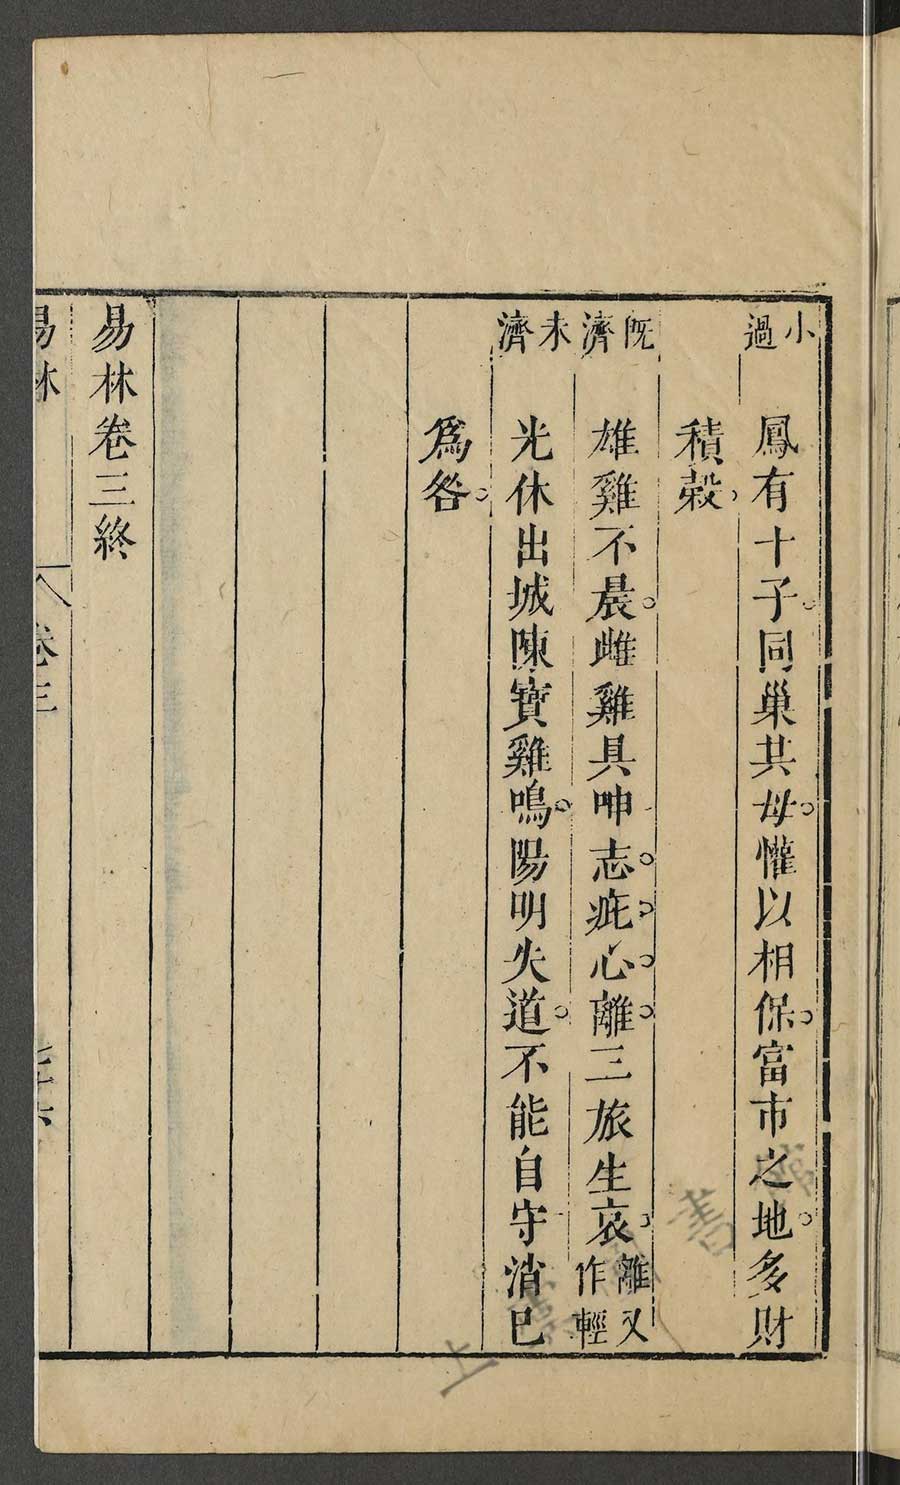 小過　鳳有十子。同巢共母。懽以相保。富市之地。多財
積穀。
既濟　雄雞不晨。雌雞具呻。志疵心離。三旅生哀。離又作輕
未濟　光休出城。陳寳雞鳴。陽明失道。不能自守。消巳
爲咎。
易林卷三終
易林　卷三